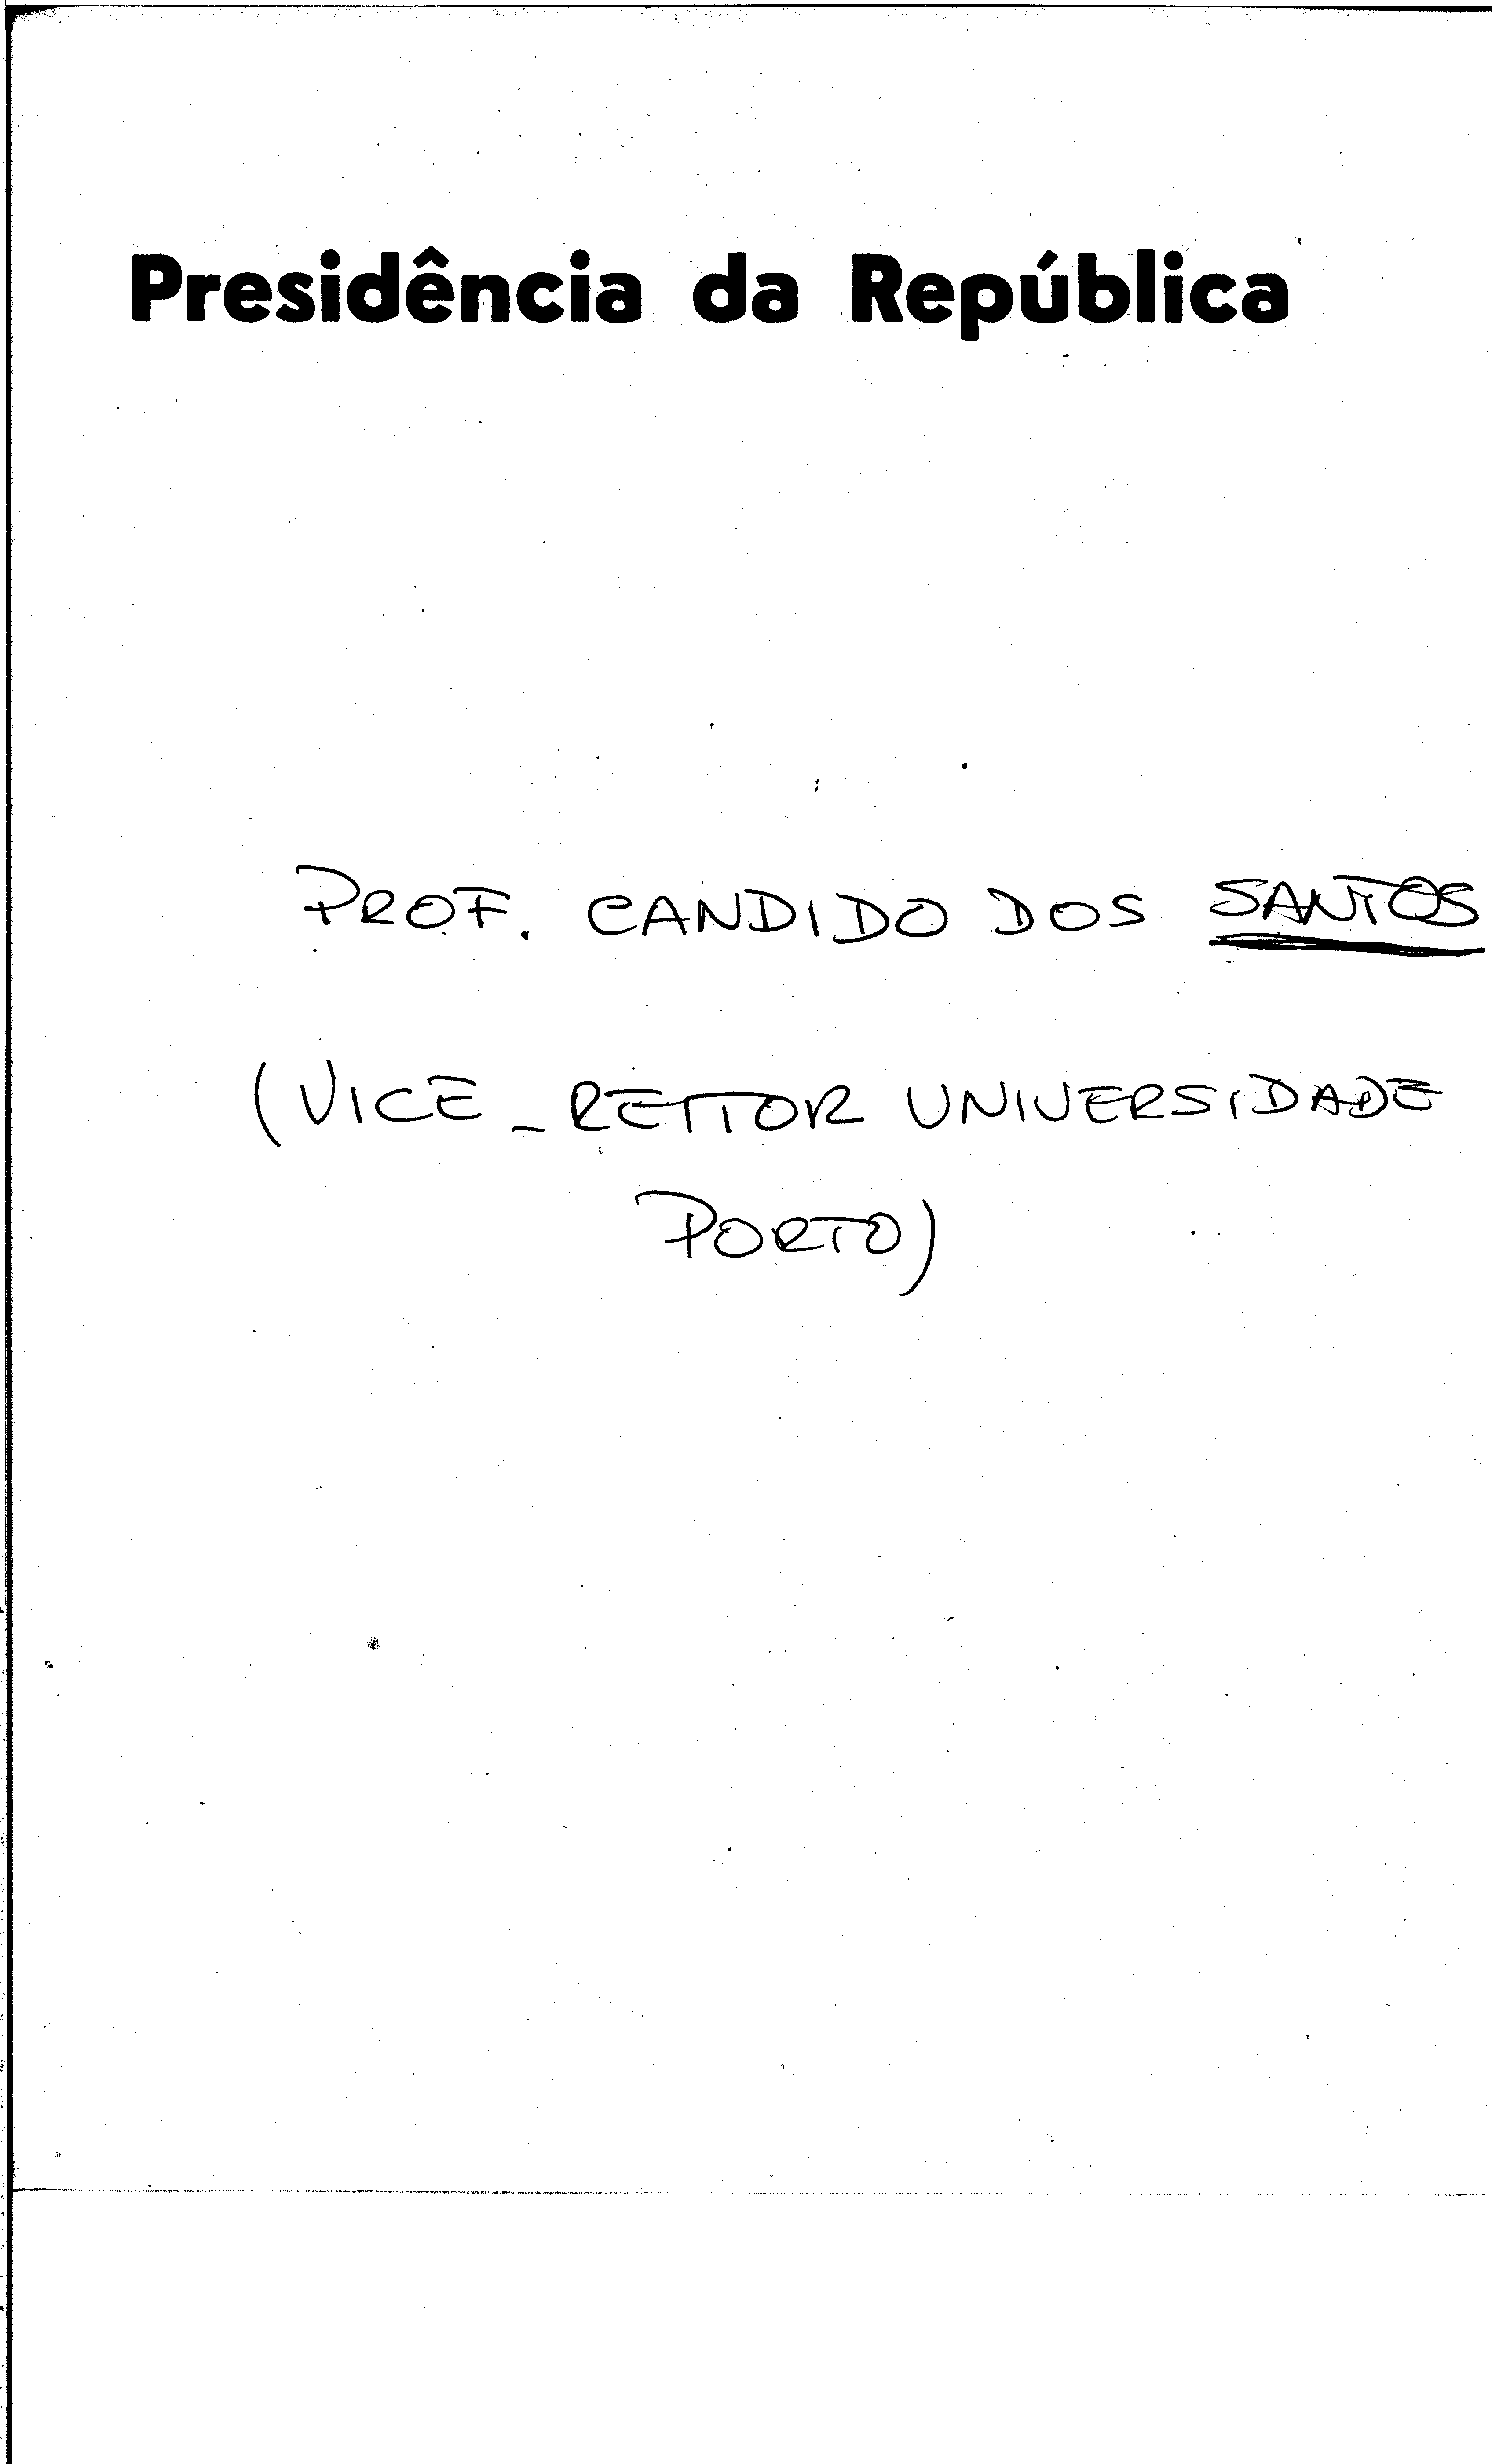 Presidência da República
PROF. CANDIDO DOS SANTOS
(VICE-REITOR UNIVERSIDADE
PORTO)